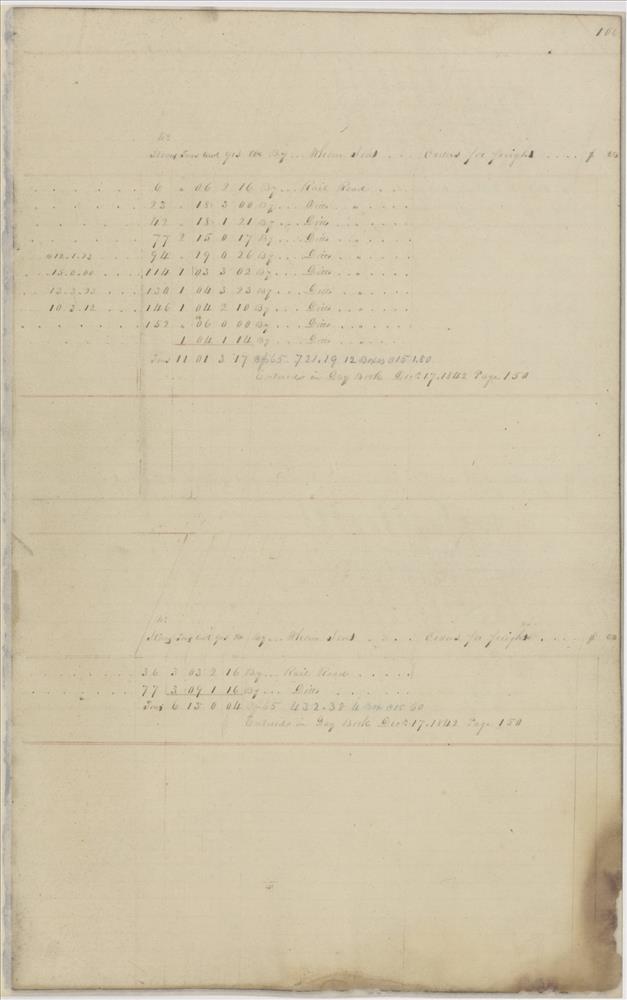 106
W:
Tons cwt qrs lbs By... Whom Sent .... Orders for freight .... $
6 " 06 2 16 By... Rail Road
23 . 18 3 00 By... Ditto
42 . 18 1 21 By... Ditto
77 2 15 0 17 By... Ditto
12.1.23 94 . 19 0 26 By... Ditto
15.0.00 114 1 03 3 02 By... Ditto
130 1 04 3 23 By... Ditto
10.3.12 146 1 04 2 10 By... Ditto
152 " 06 0 00 By... Ditto
1 04 1 14 By... Ditto
Tons 11 01 3 17 @ 65 721.19 12 Boxes @ 15 1.80
Entered in Day Book Decr 17. 1842 Page 150
W:
Tons cwt qrs lbs By... Whom Sent .... Orders for freight .... $
36 3 03 2 16 By... Rail Road
77 3 09 1 16 By... Ditto
Tons 6 13 0 04 @ 65 432.38 4 Box @ 15 60
Entered in Day Book Decr 17. 1842 Page 150